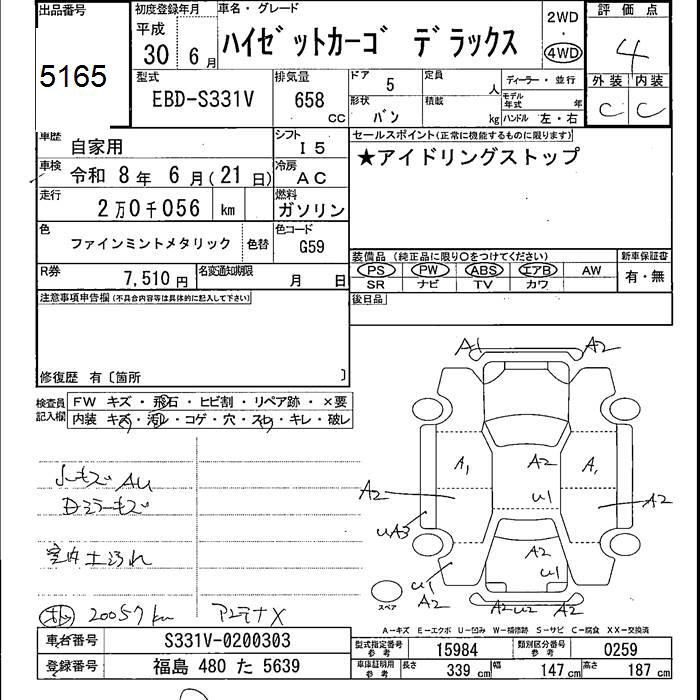 出品番号
5165
初度登録年月
平成
30 6月
車名・グレード
ハイゼットカーゴ デラックス
2WD
・
4WD
評価点
4
外装 内装
C C
型式
EBD-S331V
排気量
658 CC
ドア 5
形状 バン
定員 人
積載 kg
ディーラー・並行
モデル年式 年
ハンドル 左・右
車歴 自家用
シフト I5
車検 令和 8年 6月(21日)
冷房 AC
走行 2万0千056 km
燃料 ガソリン
色 ファインミントメタリック 色替
色コード G59
セールスポイント(正常に機能するものに限ります)
★アイドリングストップ
R券 7,510円
名変通知期限 月 日
装備品 (純正品に限り○をつけてください)
PS PW ABS エアB AW
SR ナビ TV カワ
新車保証書
有・無
注意事項申告欄(不具合内容等は具体的に記入して下さい)
後日品
修復歴 有〔箇所 〕
検査員記入欄
FW キズ・飛石・ヒビ割・リペア跡・×要
内装 キズ・汚レ・コゲ・穴・スレ・キレ・破レ
A1 A2
A1 A2 A1
A2 U1 A2
UA3
A2
U1 U1
A2
A2 U2 A2
スペア
AU
Dミラーキズ
室内土汚れ
20057km
アンテナX
A-キズ E-エクボ U-凹み W-補修跡 S-サビ C-腐食 XX-交換済
車台番号 S331V-0200303
登録番号 福島 480 た 5639
型式指定番号 参考 15984
類別区分番号 参考 0259
車庫証明用 参考 長さ 339 cm 幅 147 cm 高さ 187 cm